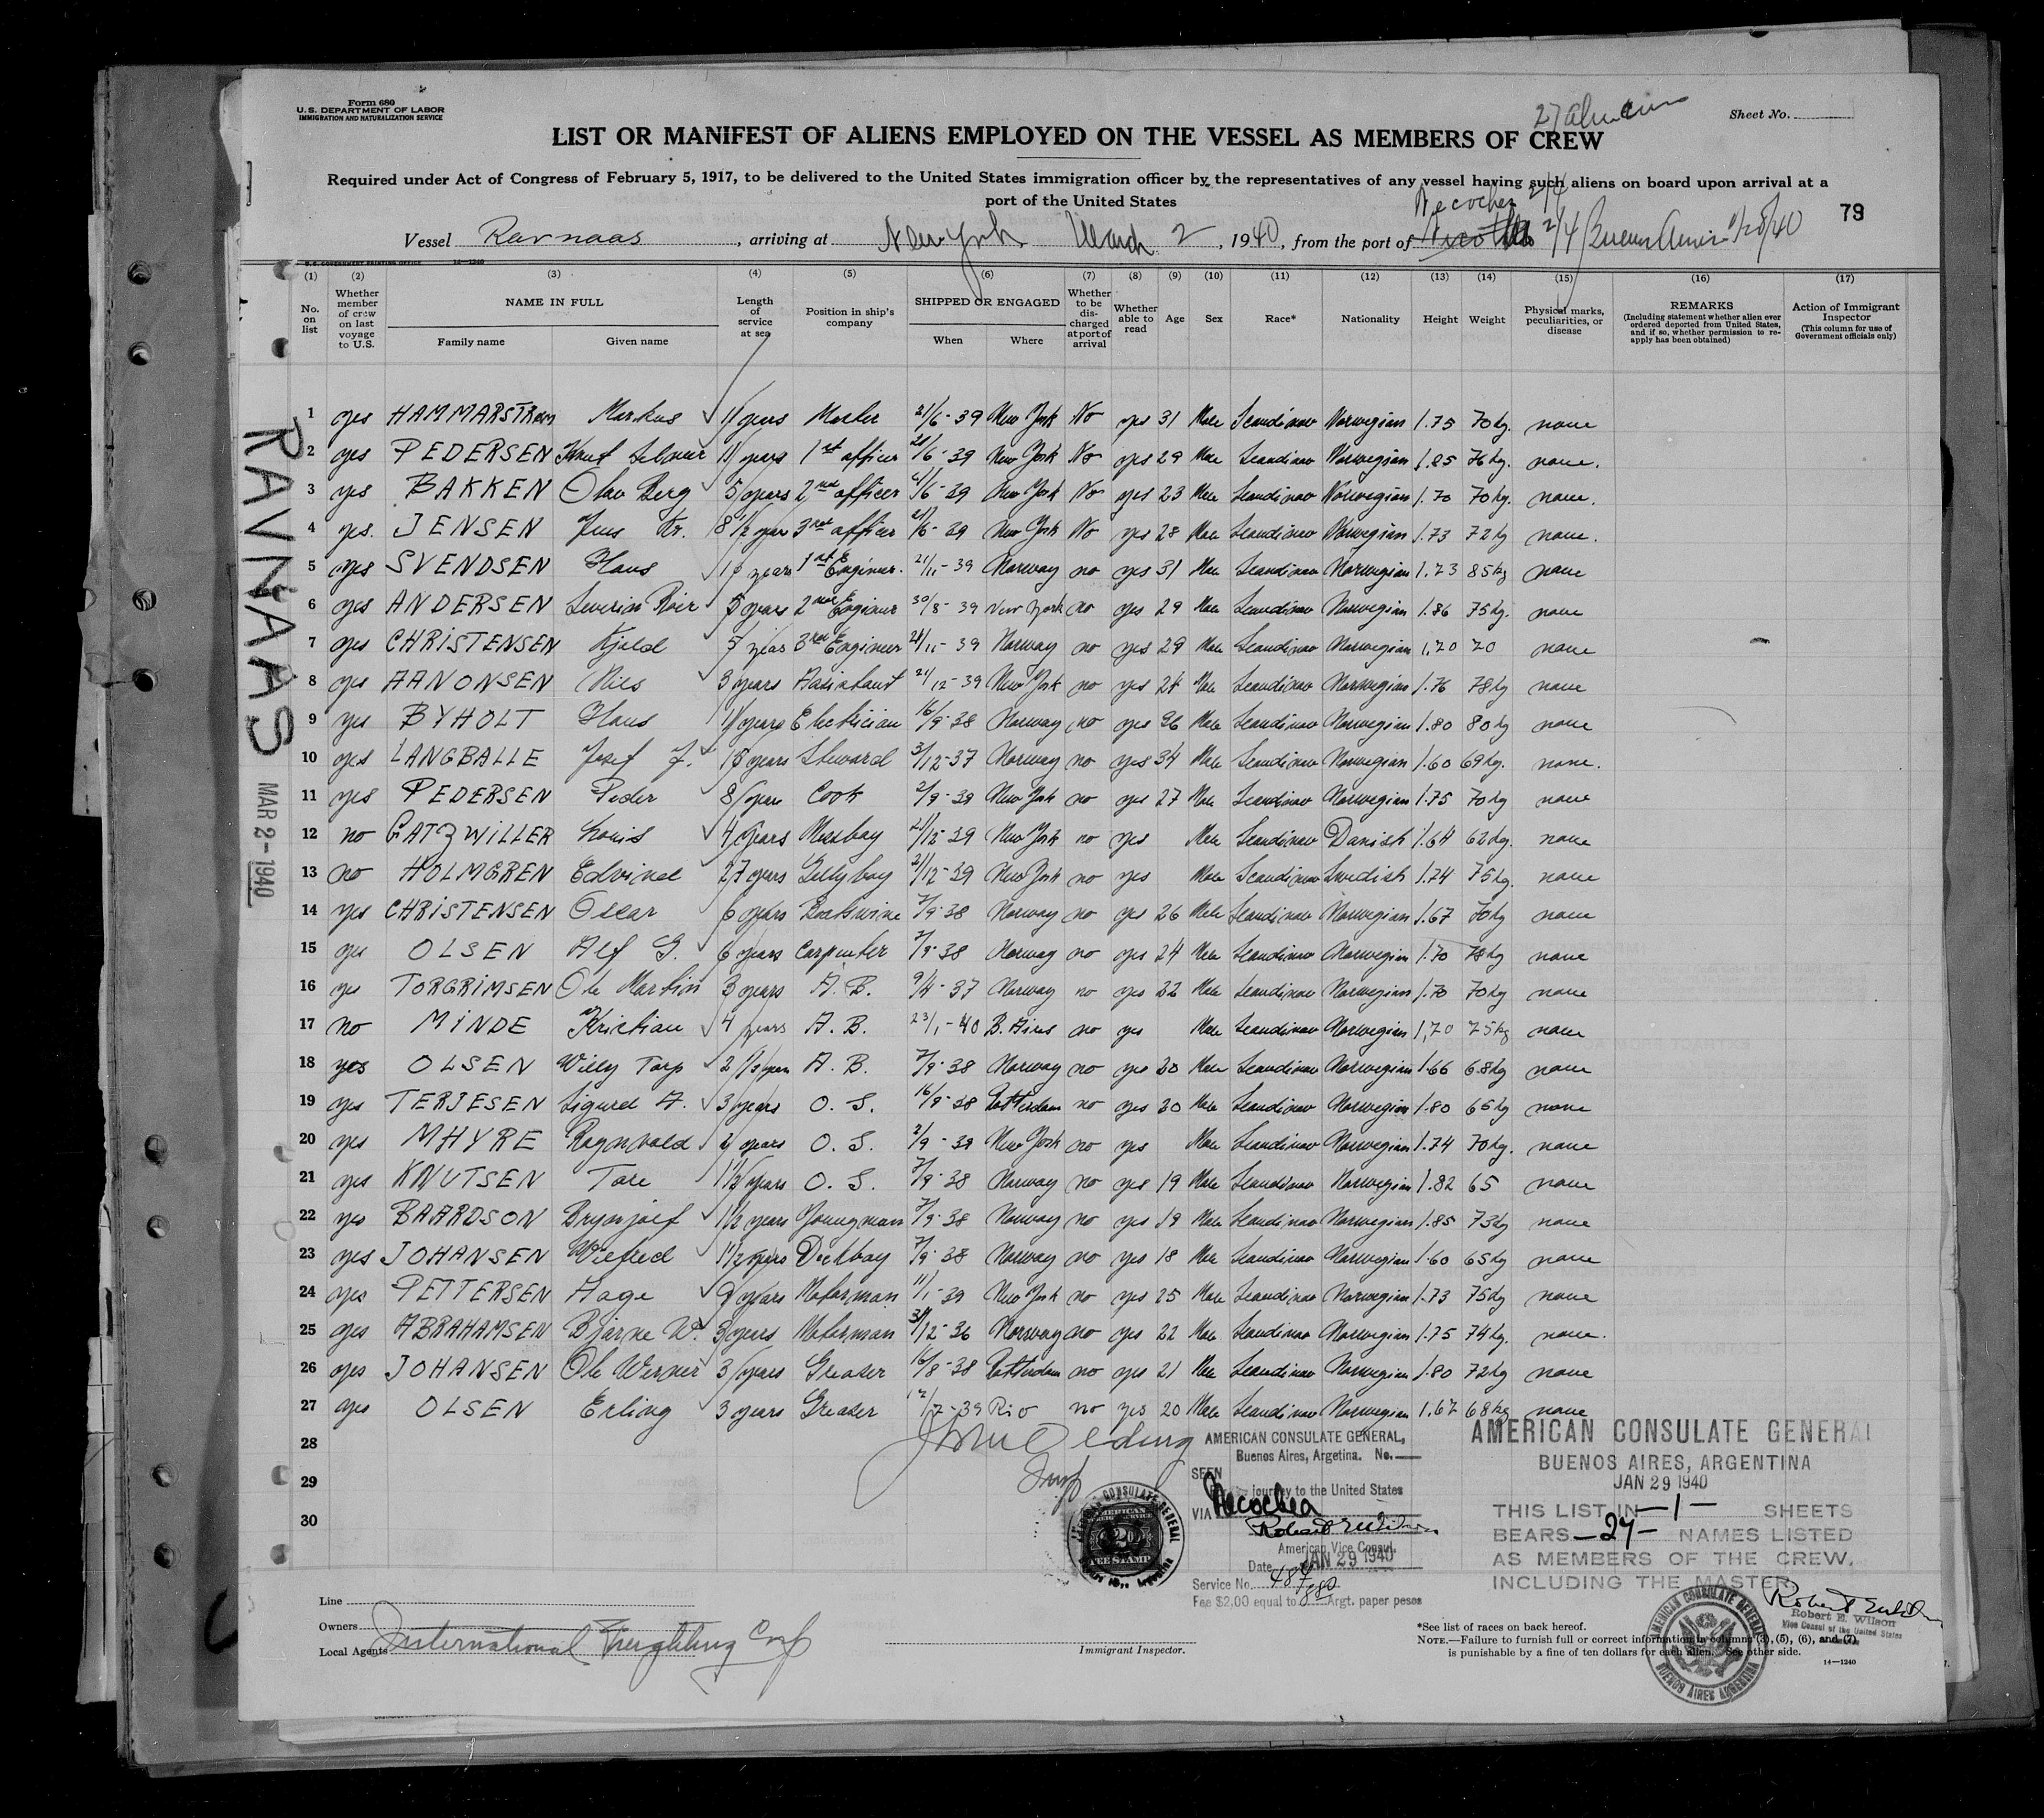 Form 680
U.S. DEPARTMENT OF LABOR
IMMIGRATION AND NATURALIZATION SERVICE
27 aliens
Sheet No.
LIST OR MANIFEST OF ALIENS EMPLOYED ON THE VESSEL AS MEMBERS OF CREW
Required under Act of Congress of February 5, 1917, to be delivered to the United States immigration officer by the representatives of any vessel having such aliens on board upon arrival at a
port of the United States
Necochea 2/4
79
Vessel Ravnaas, arriving at New York March 2, 1940, from the port of 2/4 Buenos Aires 1/28/40
U.S. GOVERNMENT PRINTING OFFICE 14—1240
(1) (2) (3) (4) (5) (6) (7) (8) (9) (10) (11) (12) (13) (14) (15) (16) (17)
No. on list
Whether member of crew on last voyage to U.S.
NAME IN FULL
Family name
Given name
Length of service at sea
Position in ship's company
SHIPPED OR ENGAGED
When
Where
Whether to be discharged at port of arrival
Whether able to read
Age
Sex
Race*
Nationality
Height
Weight
Physical marks, peculiarities, or disease
REMARKS
(Including statement whether alien ever ordered deported from United States, and if so, whether permission to re-apply has been obtained)
Action of Immigrant Inspector
(This column for use of Government officials only)
1 yes HAMMARSTROM Markus 11 years Master 21/6-39 New York No yes 31 Male Scandinav Norwegian 1.75 70kg. none
2 yes PEDERSEN Knut 11 years 1st officer 21/6-39 New York No yes 29 Male Scandinav Norwegian 1.85 76kg. none.
3 yes BAKKEN Olav Berg 5 years 2nd officer 21/6-39 New York No yes 23 Male Scandinav Norwegian 1.70 70kg. none.
4 yes. JENSEN Jens Kr. 8 1/2 year 3rd officer 21/6-39 New York No yes 28 Male Scandinav Norwegian 1.73 72kg none.
5 yes SVENDSEN Hans years 1st Engineer. 21/11-39 Norway no yes 31 Male Scandinav Norwegian 1.73 85kg none
6 yes ANDERSEN Severin 5 years 2nd Engineer 30/8-39 New York no yes 29 Male Scandinav Norwegian 1.86 75kg. none
7 yes CHRISTENSEN Kjeld 7 years 3rd Engineer 21/11-39 Norway no yes 29 Male Scandinav Norwegian 1,70 70 none
8 yes AANONSEN Nils 3 years Assistant 21/12-39 New York no yes 24 Male Scandinav Norwegian 1.76 78kg none
9 yes BYHOLT Hans 11 years Electrician 16/9-38 Norway no yes 36 Male Scandinav Norwegian 1.80 80kg none
10 yes LANGBALLE Josef J. 18 years Steward 3/12-37 Norway no yes 34 Male Scandinav Norwegian 1.60 69kg. none.
11 yes PEDERSEN Peder 8 years Cook 2/9-39 New York no yes 27 Male Scandinav Norwegian 1.75 70kg none
12 no GATZWILLER Louis 4 years Messboy 21/12-39 New York no yes Male Scandinav Danish 1.64 62kg. none
13 no HOLMGREN Edvind 27 years Gallyboy 21/12-39 New York no yes Male Scandinav Swedish 1.74 75kg. none
14 yes CHRISTENSEN Oscar 6 years Boatswine 7/9-38 Norway no yes 26 Male Scandinav Norwegian 1.67 70kg none
15 yes OLSEN Alf G. 6 years Carpenter 7/9-38 Norway no yes 24 Male Scandinav Norwegian 1.70 78kg none
16 yes TORGRIMSEN Ole Martin 3 years A.B. 9/4-37 Norway no yes 22 Male Scandinav Norwegian 1.70 70kg none
17 no MINDE Kristian 4 years A.B. 23/1-40 B. Aires no yes Male Scandinav Norwegian 1,70 75kg none
18 yes OLSEN Willy Torp 2 1/2 years A.B. 7/9-38 Norway no yes 20 Male Scandinav Norwegian 1.66 68kg none
19 yes TERJESEN Sigurd A. 3 years O.S. 16/9-38 Rotterdam no yes 20 Male Scandinav Norwegian 1.80 65kg none
20 yes MHYRE Ragnvald years O.S. 2/9-39 New York no yes Male Scandinav Norwegian 1.74 70kg. none
21 yes KNUTSEN Tore 1 1/2 years O.S. 7/9-38 Norway no yes 19 Male Scandinav Norwegian 1.82 65 none
22 yes BAARDSON Brynjolf 1 1/2 years Youngman 7/9-38 Norway no yes 19 Male Scandinav Norwegian 1.85 73kg none
23 yes JOHANSEN Wilfred 1 1/2 years Deckboy 7/9-38 Norway no yes 18 Male Scandinav Norwegian 1.60 65kg none
24 yes PETTERSEN Aage 9 years Motorman 11/1-39 New York no yes 25 Male Scandinav Norwegian 1.73 75kg none
25 yes ABRAHAMSEN Bjarne W. 3 years Motorman 31/12-36 Norway no yes 22 Male Scandinav Norwegian 1.75 74kg. none.
26 yes JOHANSEN Ole Werner 3 years Greaser 16/8-38 Rotterdam no yes 21 Male Scandinav Norwegian 1.80 72kg none
27 yes OLSEN Erling 3 years Greaser 12/7-39 Rio no yes 20 Male Scandinav Norwegian 1.67 68kg none
28
29
30
RAVNAAS
MAR 2-1940
Insp
AMERICAN CONSULATE GENERAL,
Buenos Aires, Argetina. No.
SEEN
journey to the United States
VIA Necochea
American Vice Consul.
Date JAN 29 1940
Service No. 484
Fee $2,00 equal to 880 Argt. paper pesos
AMERICAN CONSULATE GENERAL
BUENOS AIRES, ARGENTINA
JAN 29 1940
THIS LIST IN -1- SHEETS
BEARS -27- NAMES LISTED
AS MEMBERS OF THE CREW,
INCLUDING THE MASTER.
Robert E. Wilson
Vice Consul of the United States
AMERICAN CONSULATE GENERAL
BUENOS AIRES ARGENTINA
FEE STAMP
Line
Owners
Local Agents International Freighting Corp
Immigrant Inspector.
*See list of races on back hereof.
NOTE.—Failure to furnish full or correct information in columns (3), (5), (6), and (7)
is punishable by a fine of ten dollars for each alien. See other side.
14—1240